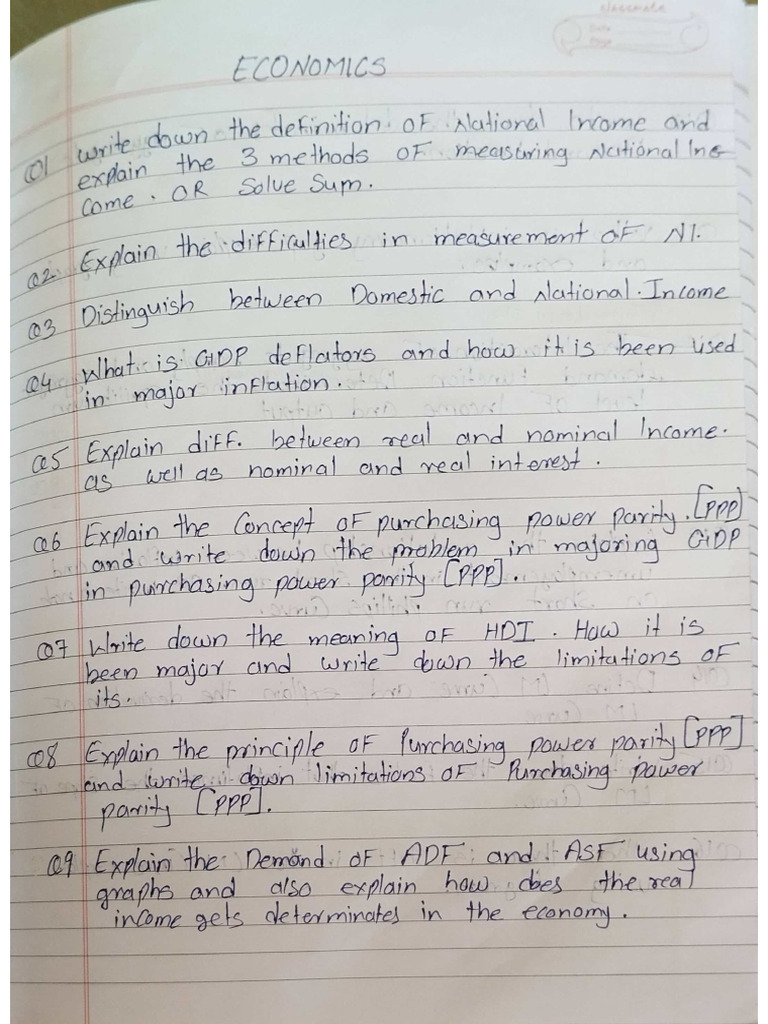 classmate
Date
Page
ECONOMICS
Q1 Write down the definition of National Income and
explain the 3 methods of measuring National Inc
come. OR Solve Sum.
Q2. Explain the difficulties in measurement of NI.
Q3 Distinguish between Domestic and National Income
Q4 What is GDP deflators and how it is been used
in major inflation.
Q5 Explain diff. between real and nominal Income.
as well as nominal and real interest.
Q6 Explain the Concept of purchasing power parity. [PPP]
and write down the problem in majoring GDP
in purchasing power parity [PPP].
Q7 Write down the meaning of HDI. How it is
been major and write down the limitations of
its.
Q8 Explain the principle of Purchasing power parity [PPP]
and write down limitations of Purchasing power
parity [PPP].
Q9 Explain the Demand of ADF and ASF using
graphs and also explain how does the real
income gets determinates in the economy.